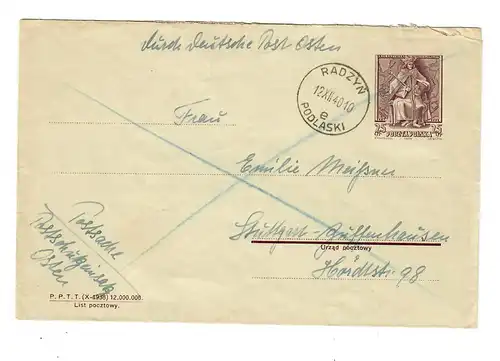 durch Deutsche Post Osten
RADZYŃ
12XII4010
e
PODLASKI
25 POCZTA POLSKA 25
Frau
Emilie Meißner
Stuttgart-Zuffenhausen
Urząd pocztowy
Hördtstr. 98
Postsache
Postschutzeinsatz
Osten
P. P. T. T. (X-1938) 12.000.000.
List pocztowy.